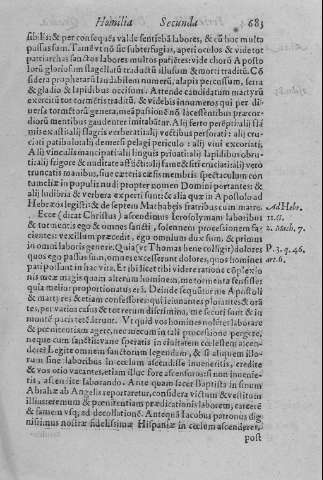 Homilia Secunda 683
sibilis: & per consequẽs valde sensibẽ labores, & cũ hoc multo
passus sum. Tamẽ vt nõ sic subterfugias, aperi oculos & vide tot
patriarchas sanctos labores multos patiẽtes: vide chorũ Aposto
lorũ gloriosum flagellatũ traductũ illusum & morti traditũ. Cõ
sidera prophetarũ laudabilem numerũ, aliquis percussum, serra
& gladio & lapidibus occisum. Attende candidatum martyrũ
exercitũ tot tormẽtis traditũ, & videbis innumeros qui per di-
uersa tormẽtorũ genera, mea passionẽ nõ lacessentibus præcor-
diorũ mentibus gaudenter imitabãtur. Alij ferro perẽpti: alij
mis exusti: alij flagris verberati: alij vectibus perforati: alij cru-
ciati patibulo: alij demersi pelagi periculo: alij viui excoriati,
Alij vinculis mancipati: alij linguis priuati: alij lapidibus obru-
ti: alij frigore & nuditate afflicti: alij fame & siti cruciati: alij vero
truncatis manibus, siue cæteris cæsis membris spectaculum con
tumeliæ in populis nudi propter nomen Domini portantes: &
alij ludibria & verbera experti sunt: & alia quæ in Apostolo ad
Hebræos legisti: & de septem Machabęis fratribus cum matre. Ad Heb.
Ecce (dicat Christus) ascendimus Ierosolymam laboribus 11.G.
& tormentis ego & omnes sancti, solennem professionem fa- 2. Mach. 7.
cientes: vexillum præcedit, ego omnium dux sum, & primus
in omni laboris genere. Quia (vt Thomas bene colligit) dolores P. 3. q. 46.
quos ego passus sum, omnes excesserunt dolores, quos homines art. 6.
pati possunt in hac vita. Et ibi licet tibi videre ratione cõplexio
nis meæ magis quam alterum hominem, me tormenta sensisse:
quia melius proportionatus erã. Deinde sequũtur me Apostoli
& martyres & etiam confessores qui ieiunantes plorantes & orã
tes, per varios casus & tot rerum discrimina, me secuti sunt & in
montẽ pacis recẽ adunt. Vt quid vos homines nõ læti laborare
& pœnitentiam agere, nec mecum in tali processione pergere,
neque cum sanctis vane speratis in ciuitatem cœlestem ascen-
dere? Legite omnem sanctorum legendam, & si aliquem illo-
rum sine laboribus in cœlum ascendisse inueneritis, credite
& vos otio vacantes, etiam illuc fore ascensuros: si non inuenie-
tis, ascendite laborando. Ante quam esset Baptista in sinum
Abrahæ ab Angelis reportaretur, considera victum & vestitum
illius: eremum & pœnitentiam prædicationis laborem, carcerẽ
& famem vsque ad decollationẽ. Antequã Iacobus patronus dig
nissimus nostræ fidelissimæ Hispaniæ in cœlum ascenderet,
post